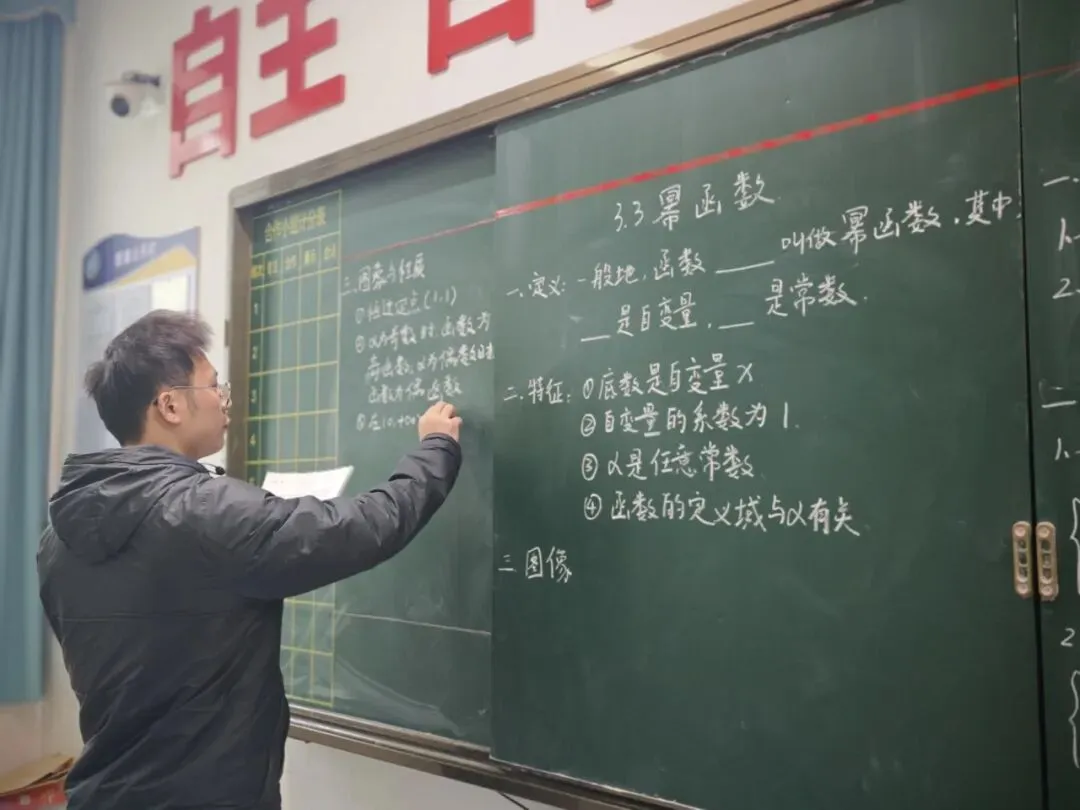 自主
合作小组计分表
1
2
3
4
三、图象与性质
①恒过定点(1,1)
②α为奇数时,函数为
奇函数,α为偶数时
函数为偶函数
③在(0,+∞)
3.3 幂函数
一、定义:一般地,函数____叫做幂函数,其中
__是自变量,__是常数.
二、特征:①底数是自变量x
②自变量的系数为1.
③α是任意常数
④函数的定义域与α有关
三、图像
一、
1.
2.
二
1.
2